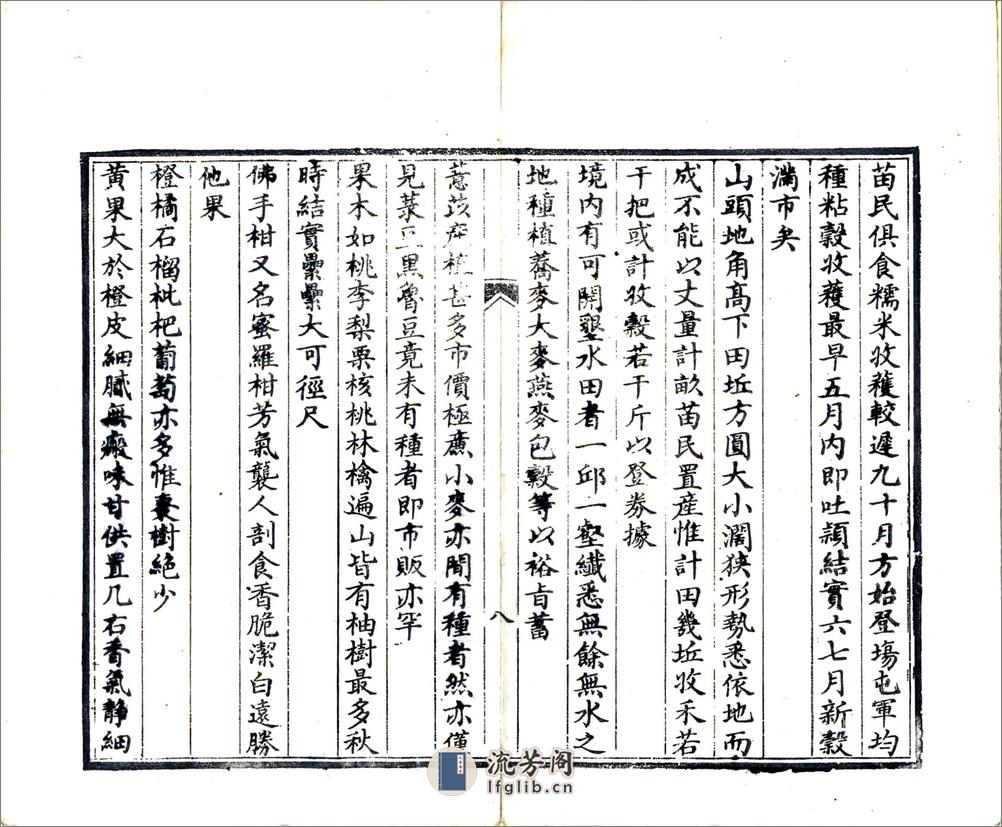 苗民俱食糯米收穫較遲九十月方始登塲屯軍均
種粘穀收穫最早五月內即吐穎結實六七月新穀
滿市矣
山頭地角高下田坵方圓大小濶狹形勢悉依地而
成不能以丈量計畝苗民置産惟計田幾坵收禾若
干把或計收穀若干斤以登券據
境內有可開墾水田者一邱一壑纖悉無餘無水之
地種植蕎麥大麥燕麥包穀等以裕旨蓄
八
薏苡産種甚多市價極亷小麥亦間有種者然亦僅
見菉豆黑魯豆竟未有種者即市販亦罕
果木如桃李梨栗核桃林檎遍山皆有柚樹最多秋
時結實纍纍大可徑尺
佛手柑又名蜜羅柑芳氣襲人剖食香脆潔白遠勝
他果
橙橘石榴枇杷葡萄亦多惟棗樹絕少
黃果大於橙皮細膩無瘢味甘供置几右香氣静細
流芳阁
lfglib.cn